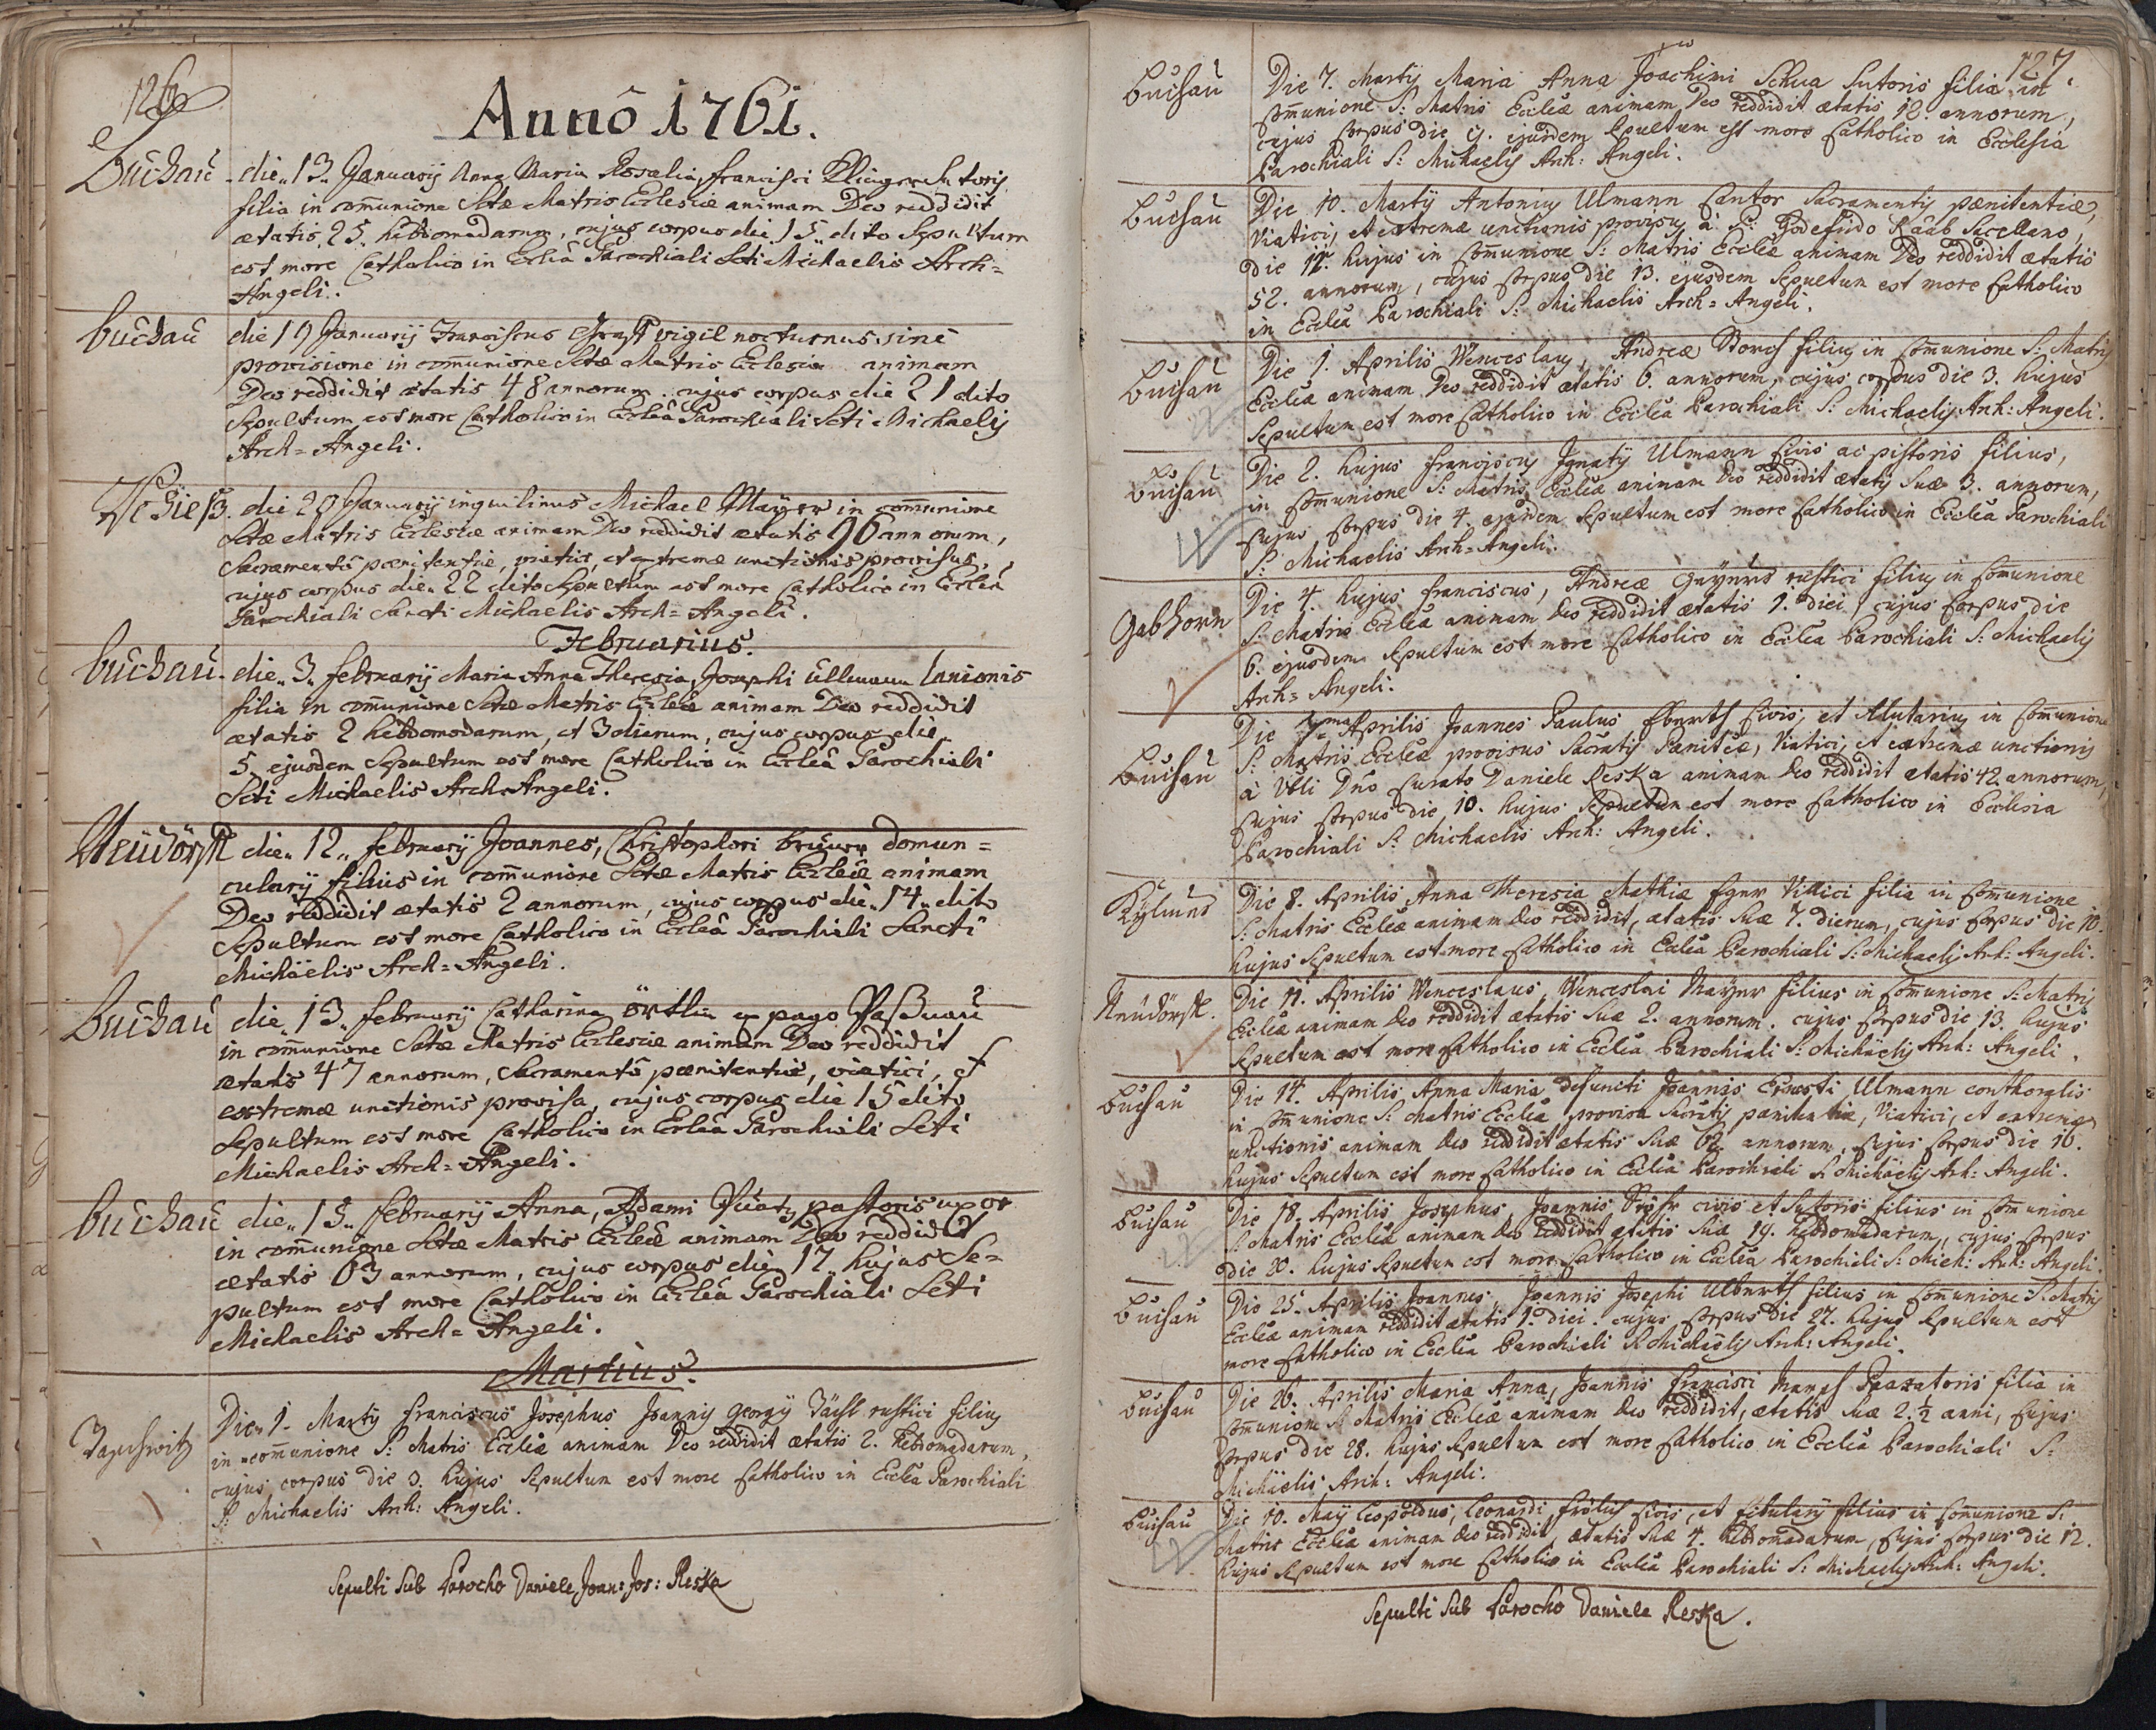 126
Anno 1761.
Buchau
die 13 Januarij Anna Maria Rosalia, Francisci Klinger Sutoris
filia in com̄unione Sctæ Matris Ecclesiæ animam Deo reddidit
ætatis 25 hebdomadarum, cujus corpus die 15 dito Sepultum
est more Catholico in Ecclâ Parochiali Scti Michaelis Arch=
Angeli.
Buchau
die 19 Januarij Franciscus vigil nocturnus sine
provisione in com̄unione Sctæ Matris Eclesiæ animam
Deo reddidit ætatis 48 annorum cujus corpus die 21 dito
Sepultum est more Catholico in Ecleâ Parochiali Scti Michaelis
Arch=Angeli.
die 20 Januarij inquilinus Michael Mayer in com̄unione
Sctæ Matris Ecclesiæ animam Deo reddidit ætatis 96 annorum,
Sacramentô pœnitentiæ, viatici, et extremæ unctionis provisus,
cujus corpus die 22 dito Sepultum est more Catholico in Ecclea
Parochiali Sancti Michaelis Arch=Angeli.
Februarius.
Buchau
die 3 Februarij Maria Anna Theresia, Josephi Ullmann Lanionis
filia in com̄unione Sctæ Matris Eccleiæ animam Deo reddidit
ætatis 2 hebdomodarum, et 3 dierum, cujus corpus die
5 ejusdem Sepultum est more Catholico in Eccleâ Parochiali
Scti Michaelis Arch=Angeli.
Neudörfl
die 12 Februarij Joannes, Christophori domun=
cularij filius in com̄unione Sctæ Matris Eccleiæ animam
Deo reddidit ætatis 2 annorum, cujus corpus die 14 dito
Sepultum est more Catholico in Eccleâ Parochiali Sancti
Michäelis Arch=Angeli.
Buchau
die 13 Februarij Catharina örtlin ex pago
in com̄unione Sctæ Matris Ecclesiæ animam Deo reddidit
ætatis 47 annorum, Sacramentô pœnitentiæ, viatici, et
extremæ unctionis provisa, cujus corpus die 15 dito
Sepultum est more Catholico in Eccleâ Parochiali Scti
Michaelis Arch=Angeli.
Buchau
die 15 Februarij Anna, Adami pastoris uxor
in com̄unione Sctæ Matris Eccleiæ animam Deo reddidit
ætatis 63 annorum, cujus corpus die 17 hujus Se=
pultum est more Catholico in Eccleâ Parochiali Scti
Michaelis Arch=Angeli.
Martius.
Die 1 Martij Franciscus Josephus Joannis Georgij rustici filius
in com̄unione S: Matris Eccliæ animam Deo reddidit ætatis 2. hebdomadarum,
cujus corpus die 3. hujus Sepultum est more Catholico in Ecclea Parochiali
S: Michaelis Arch: Angeli.
Sepulti Sub Parocho Daniele Joan: Jos: Reska
127.
Buchau
Die 7. Martij Maria Anna Joachimi Schua Sutoris filia in
Com̄unione S: Matris Eccliæ animam Deo reddidit ætatis 12. annorum,
cujus Corpus die 9. ejusdem Sepultum est more Catholico in Ecclesia
Parochiali S: Michaelis Arch: Angeli.
Buchau
Die 10. Martij Antonius Ulmann Cantor Sacramentis pœnitentiæ,
Viatici, et extremæ unctionis provisus à P: Godefrido Raab Sacellano,
die 11. hujus in Com̄unione S: Matris Eccliæ animam Deo reddidit ætatis
52. annorum, cujus Corpus die 13. ejusdem Sepultum est more Catholico
in Ecclia Parochiali S: Michaelis Arch=Angeli.
Buchau
Die 1. Aprilis Wenceslaus, Andreæ Storch filius in Com̄unione S: Matris
Eccliæ animam Deo reddidit ætatis 6. annorum, cujus corpus die 3. hujus
Sepultum est more Catholico in Ecclia Parochiali S: Michaelis Arch: Angeli.
Buchau
Die 2. hujus Franciscus Ignatij Ulmann Civis ac pistoris filius,
in Com̄unione S: Matris Eccliæ animam Deo reddidit ætatis Suæ 3. annorum,
Cujus Corpus die 4. ejusdem Sepultum est more Catholico in Ecclia Parochiali
S: Michaelis Arch=Angeli.
Gabhorn
Die 4. hujus Franciscus, Andreæ rustici filius in Com̄unione
S: Matris Eccliæ animam Deo reddidit ætatis 1. diei, cujus Corpus die
6. ejusdem Sepultum est more Catholico in Ecclia Parochiali S: Michaelis
Arch=Angeli.
Buchau
Die 7ma Aprilis Joannes Paulus Eberth Civis, et Alutarius in Com̄unione
S: Matris Eccliæ provisus Sacratis Pœnitæ, Viatici, et extremæ unctionis
à Vbli Dno Curato Daniele Reska animam Deo reddidit ætatis 42 annorum,
Cujus Corpus die 10. hujus Sepultum est more Catholico in Ecclesia
Parochiali S: Michaelis Arch: Angeli.
Die 8. Aprilis Anna Theresia Mathiæ Egner Villici filia in Com̄unione
S: Matris Eccliæ animam Deo reddidit, ætatis Suæ 7. dierum, cujus Corpus die 10.
hujus Sepultum est more Catholico in Ecclia Parochiali S: Michaelis Arch: Angeli.
Neudörfl.
Die 11. Aprilis Wenceslaus, Wenceslai Mayer filius in Com̄unione S: Matris
Eccliæ animam Deo reddidit ætatis Suæ 2. annorum. cujus Corpus die 13. hujus
Sepultum est more Catholico in Ecclia Parochiali S: Michäelis Arch: Angeli.
Buchau
Die 14. Aprilis Anna Maria defuncti Joannis Ernesti Ulmann conthoralis
in Com̄unione S: Matris Eccliæ provisa Sacratis pœnitentiæ, Viatici, et extremæ
unctionis animam Deo reddidit ætatis Suæ 62. annorum, Cujus Corpus die 16.
hujus Sepultum est more Catholico in Ecclia Parochiali S: Michäelis Arch: Angeli.
Buchau
Die 18. Aprilis Josephus, Joannis civis et Sutoris filius in Com̄unione
S: Matris Eccliæ animam Deo reddidit ætatis Suæ 19. hebdomadarum, cujus Corpus
die 20. hujus Sepultum est more Catholico in Ecclia Parochiali S: Mich: Arch: Angeli.
Buchau
Die 25. Aprilis Joannes, Joannis Josephi Ulberth filius in Com̄unione S: Matris
Eccliæ animam reddidit ætatis 1. diei. cujus Corpus die 27. hujus Sepultum est
more Catholico in Ecclia Parochiali S: Michaëlis Arch: Angeli.
Buchau
Die 26. Aprilis Maria Anna, Joannis Francisci filia in
Com̄unione S: Matris Eccliæ animam Deo reddidit, ætatis Suæ 2.½ anni, Cujus
Corpus die 28. hujus Sepultum est more Catholico in Ecclia Parochiali S:
Michäelis Arch: Angeli.
Buchau
Die 10. Maij Leopoldus, Leonardi Frölich Civis, et fibularij filius in Com̄unione S:
Matris Eccliæ animam Deo reddidit, ætatis Suæ 4. hebdomadarum, Cujus Corpus die 12.
hujus Sepultum est more Catholico in Ecclia Parochiali S: Michaelis Arch: Angeli.
Sepulti Sub Parocho Daniele Reska.